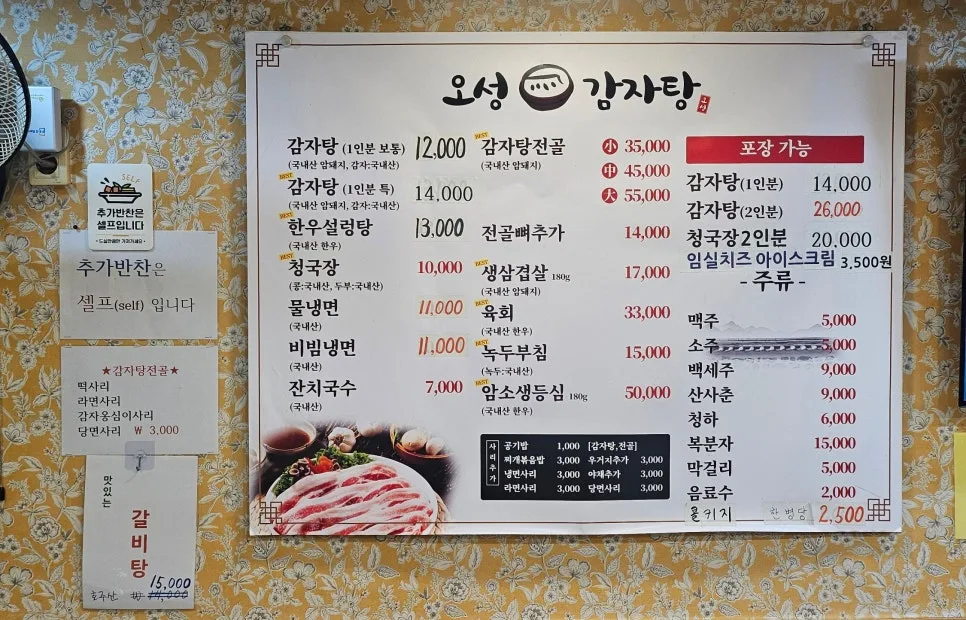 오성 감자탕
감자탕 (1인분 보통) 12,000
(국내산 암돼지, 감자:국내산)
BEST
감자탕 (1인분 특) 14,000
(국내산 암돼지, 감자:국내산)
BEST
한우설렁탕 13,000
(국내산 한우)
BEST
청국장 10,000
(콩:국내산, 두부:국내산)
물냉면 11,000
(국내산)
비빔냉면 11,000
(국내산)
잔치국수 7,000
(국내산)
BEST
감자탕전골 小 35,000
(국내산 암돼지)
中 45,000
大 55,000
전골뼈추가 14,000
BEST
생삼겹살 180g 17,000
(국내산 암돼지)
BEST
육회 33,000
(국내산 한우)
BEST
녹두부침 15,000
(녹두:국내산)
BEST
암소생등심 180g 50,000
(국내산 한우)
사리추가
공기밥 1,000 [감자탕,전골]
찌개볶음밥 3,000 우거지추가 3,000
냉면사리 3,000 야채추가 3,000
라면사리 3,000 당면사리 3,000
포장 가능
감자탕(1인분) 14,000
감자탕(2인분) 26,000
청국장2인분 20,000
임실치즈 아이스크림 3,500원
- 주류 -
맥주 5,000
소주 5,000
백세주 9,000
산사춘 9,000
청하 6,000
복분자 15,000
막걸리 5,000
음료수 2,000
콜키지 한병당 2,500
SELF
추가반찬은
셀프입니다
추가반찬은
셀프(self) 입니다
★감자탕전골★
떡사리
라면사리
감자옹심이사리
당면사리 ₩ 3,000
맛있는
갈비탕
15,000
호주산 ₩ 14,000